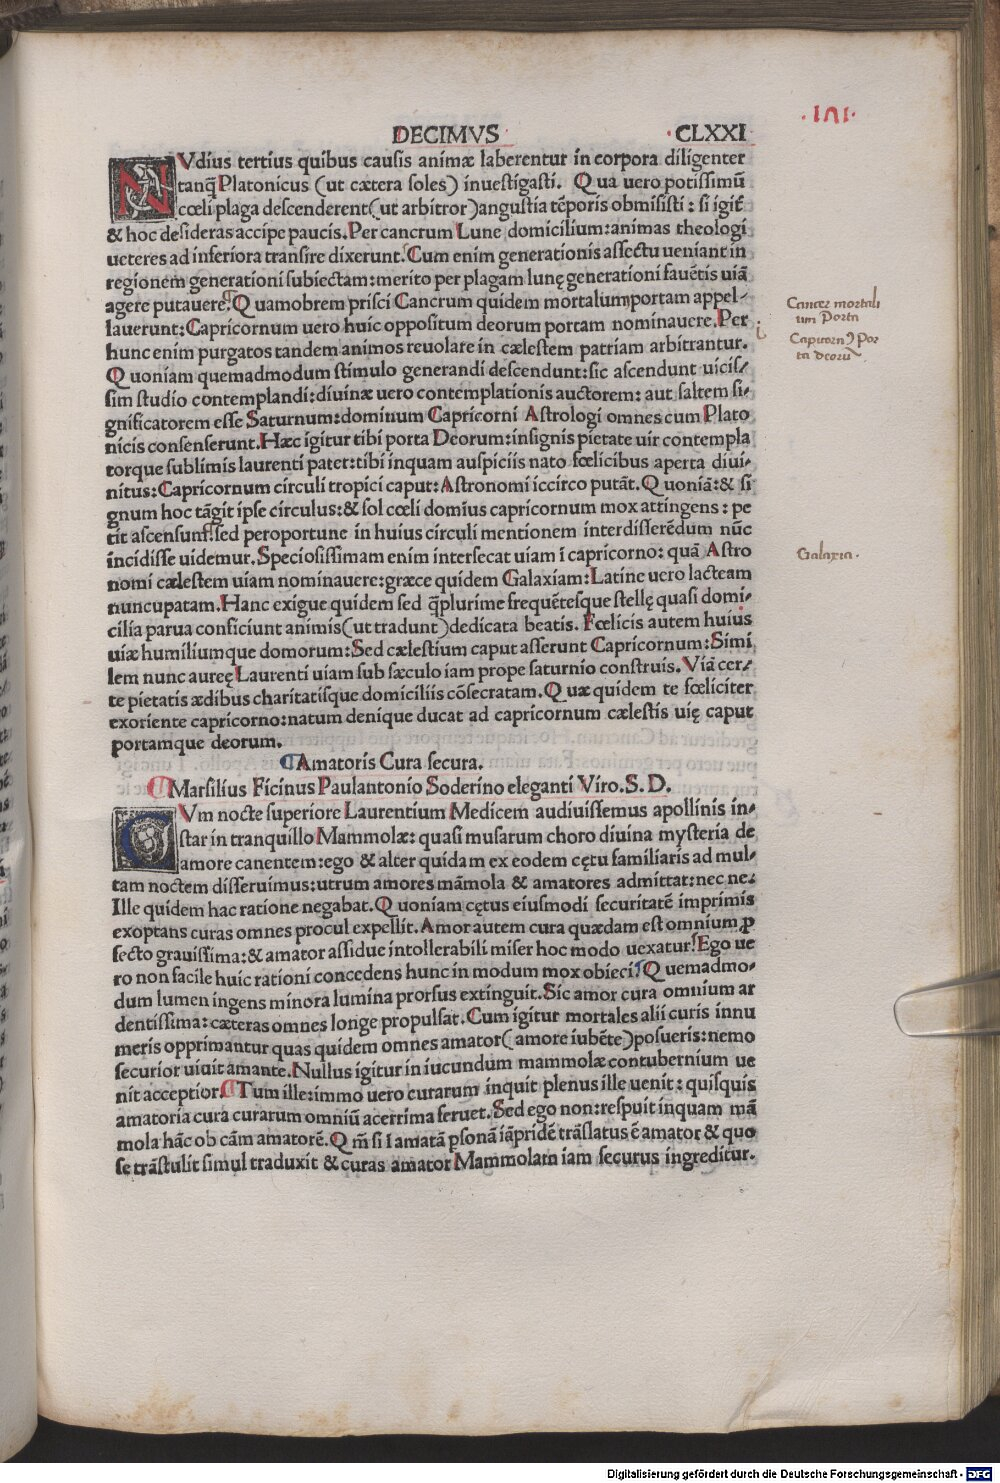 DECIMVS
CLXXI
·171·
NVdius tertius quibus causis animæ laberentur in corpora diligenter
tanq̃ Platonicus (ut cætera soles) inuestigasti. Qua uero potissimũ
cœli plaga descenderent(ut arbitror)angustia tẽporis obmisisti: si igit̃
& hoc desideras accipe paucis. Per cancrum Lune domicilium: animas theologi
ueteres ad inferiora transire dixerunt. Cum enim generationis affectu ueniant in
regionem generationi subiectam: merito per plagam lunę generationi fauẽtis uiã
agere putauere. Quamobrem prisci Cancrum quidem mortalium portam appel-
lauerunt: Capricornum uero huic oppositum deorum portam nominauere. Per
hunc enim purgatos tandem animos reuolare in cælestem patriam arbitrantur.
Quoniam quemadmodum stimulo generandi descendunt: sic ascendunt uicis-
sim studio contemplandi: diuinæ uero contemplationis auctorem: aut saltem si-
gnificatorem esse Saturnum: dominum Capricorni Astrologi omnes cum Plato
nicis consenserunt. Hæc igitur tibi porta Deorum: insignis pietate uir contempla
torque sublimis laurenti patet: tibi inquam auspiciis nato fœlicibus aperta diui-
nitus: Capricornum circuli tropici caput: Astronomi iccirco putãt. Quoniã: & si
gnum hoc tãgit ipse circulus: & sol cœli domius capricornum mox attingens: pe
tit ascensum: sed peroportune in huius circuli mentionem interdisserẽdum nũc
incidisse uidemur. Speciosissimam enim intersecat uiam ĩ capricorno: quã Astro
nomi cælestem uiam nominauere: græce quidem Galaxiam: Latine uero lacteam
nuncupatam. Hanc exigue quidem sed q̃plurime frequẽtesque stellę quasi domi-
cilia parua conficiunt animis(ut tradunt)dedicata beatis. Fœlicis autem huius
uiæ humiliumque domorum: Sed cælestium caput asserunt Capricornum: Simi
lem nunc aureę Laurenti uiam sub sæculo iam prope saturnio construis. Viã cer-
te pietatis ædibus charitatisque domiciliis cõsecratam. Quæ quidem te fœliciter
exoriente capricorno: natum denique ducat ad capricornum cælestis uię caput
portamque deorum.
Amatoris Cura secura.
Marsilius Ficinus Paulantonio Soderino eleganti Viro. S. D.
CVm nocte superiore Laurentium Medicem audiuissemus apollinis in-
star in tranquillo Mammolæ: quasi musarum choro diuina mysteria de
amore canentem: ego & alter quidam ex eodem cętu familiaris ad mul-
tam noctem disseruimus: utrum amores mãmola & amatores admittat: nec ne.
Ille quidem hac ratione negabat. Quoniam cętus eiusmodi securitatẽ imprimis
exoptans curas omnes procul expellit. Amor autem cura quædam est omnium ꝓ
fecto grauissima: & amator assidue intollerabili miser hoc modo uexatur. Ego ue
ro non facile huic rationi concedens hunc in modum mox obieci. Quemadmo-
dum lumen ingens minora lumina prorsus extinguit. Sic amor cura omnium ar
dentissima: cæteras omnes longe propulsat. Cum igitur mortales alii curis innu
meris opprimantur quas quidem omnes amator(amore iubẽte)posueris: nemo
securior uiuit amante. Nullus igitur in iucundum mammolæ contubernium ue
nit acceptior. Tum ille: immo uero curarum inquit plenus ille uenit: quisquis
amatoria cura curarum omniũ acerrima feruet. Sed ego non: respuit inquam mã
mola hãc ob cãm amatorẽ. Qm̃ si ĩ amatã ꝑsonã iãpridẽ trãslatus ẽ amator & quo
se trãstulit simul traduxit & curas amator Mammolam iam securus ingreditur.
Cancer mortali
um Porta
Capricorn9 Por
ta deorũ
Galaxia.
Digitalisierung gefördert durch die Deutsche Forschungsgemeinschaft - DFG